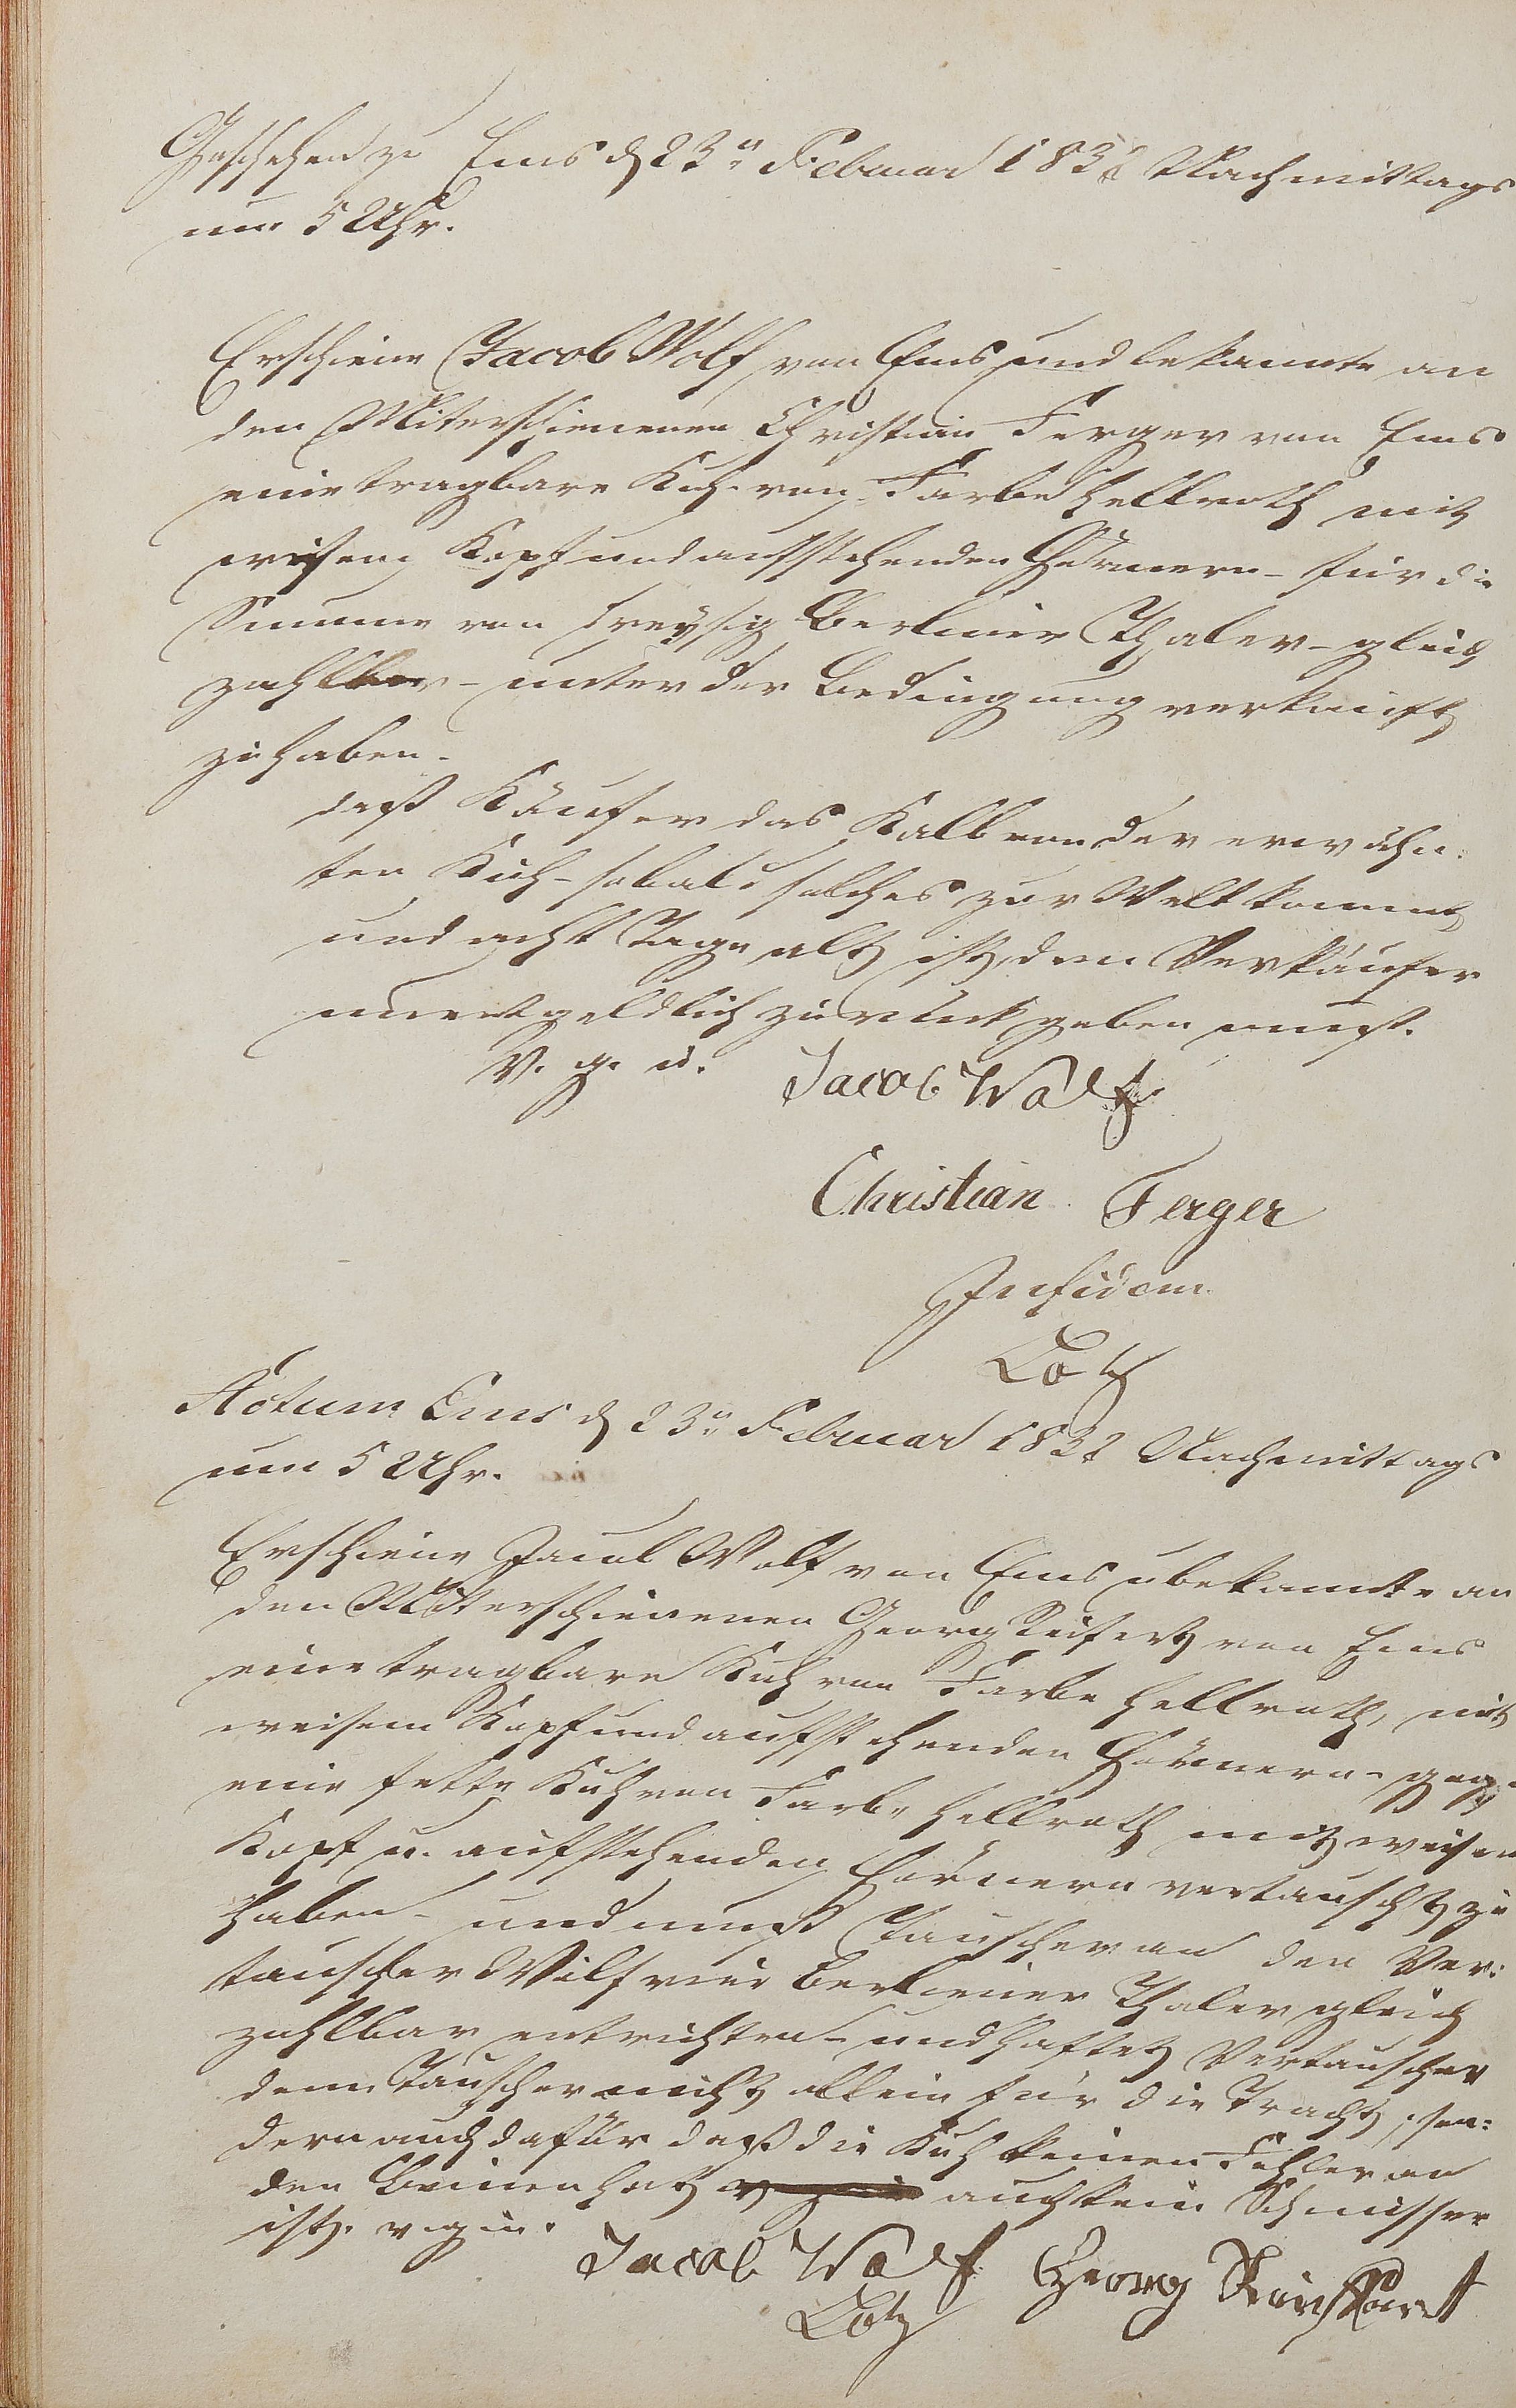 Geschehen zu Ems d 23n Februar 1832 Nachmittags
um 5 Uhr.
Erschiene Jacob Wolf von Ems und bekannte an
den Miterschienenen Christian Ferger von Ems
eine tragbare Kuh von Farbe hellroth mit
weisem Kopf und aufstehenden Hörnern - für die
Summe von dreysig Berliner Thaler - gleich
zahlbar - unter der Bedingung verkauft
zu haben -
daß Käufer das Kalb von der erwähn:
ten Kuh - sobald solches zur Welt kommt
und acht Tage alt ist, dem Verkäufer
unentgeldlich zurück geben muß.
V. g. u. Jacob Wolf
Christian Ferger
In fidem
Lotz
Actum Ems d 23n Februar 1832 Nachmittags
um 5 Uhr.
Erschiene Jacob Wolf von Ems u bekannte an
den Miterschienenen Georg von Ems
eine tragbare Kuh von Farbe hellroth, mit
weisem Kopf und aufstehenden Hörnern - geg
eine fette Kuh von Farbe hellroth mit weisem
Kopf u. aufstehenden Hörnern vertauscht zu
haben - und muß Tauscher an den Ver:
tauscher Wolf vier Berliener Thaler gleich
zahlbar entrichten - und haftet Vertauscher
dem Tauscher nicht allein für die Tracht, son:
dern auch dafür daß die Kuh keinen Fehler an
den Beinen hat auch kein
ist. v. g. u.
Jacob Wolf Georg
Lotz